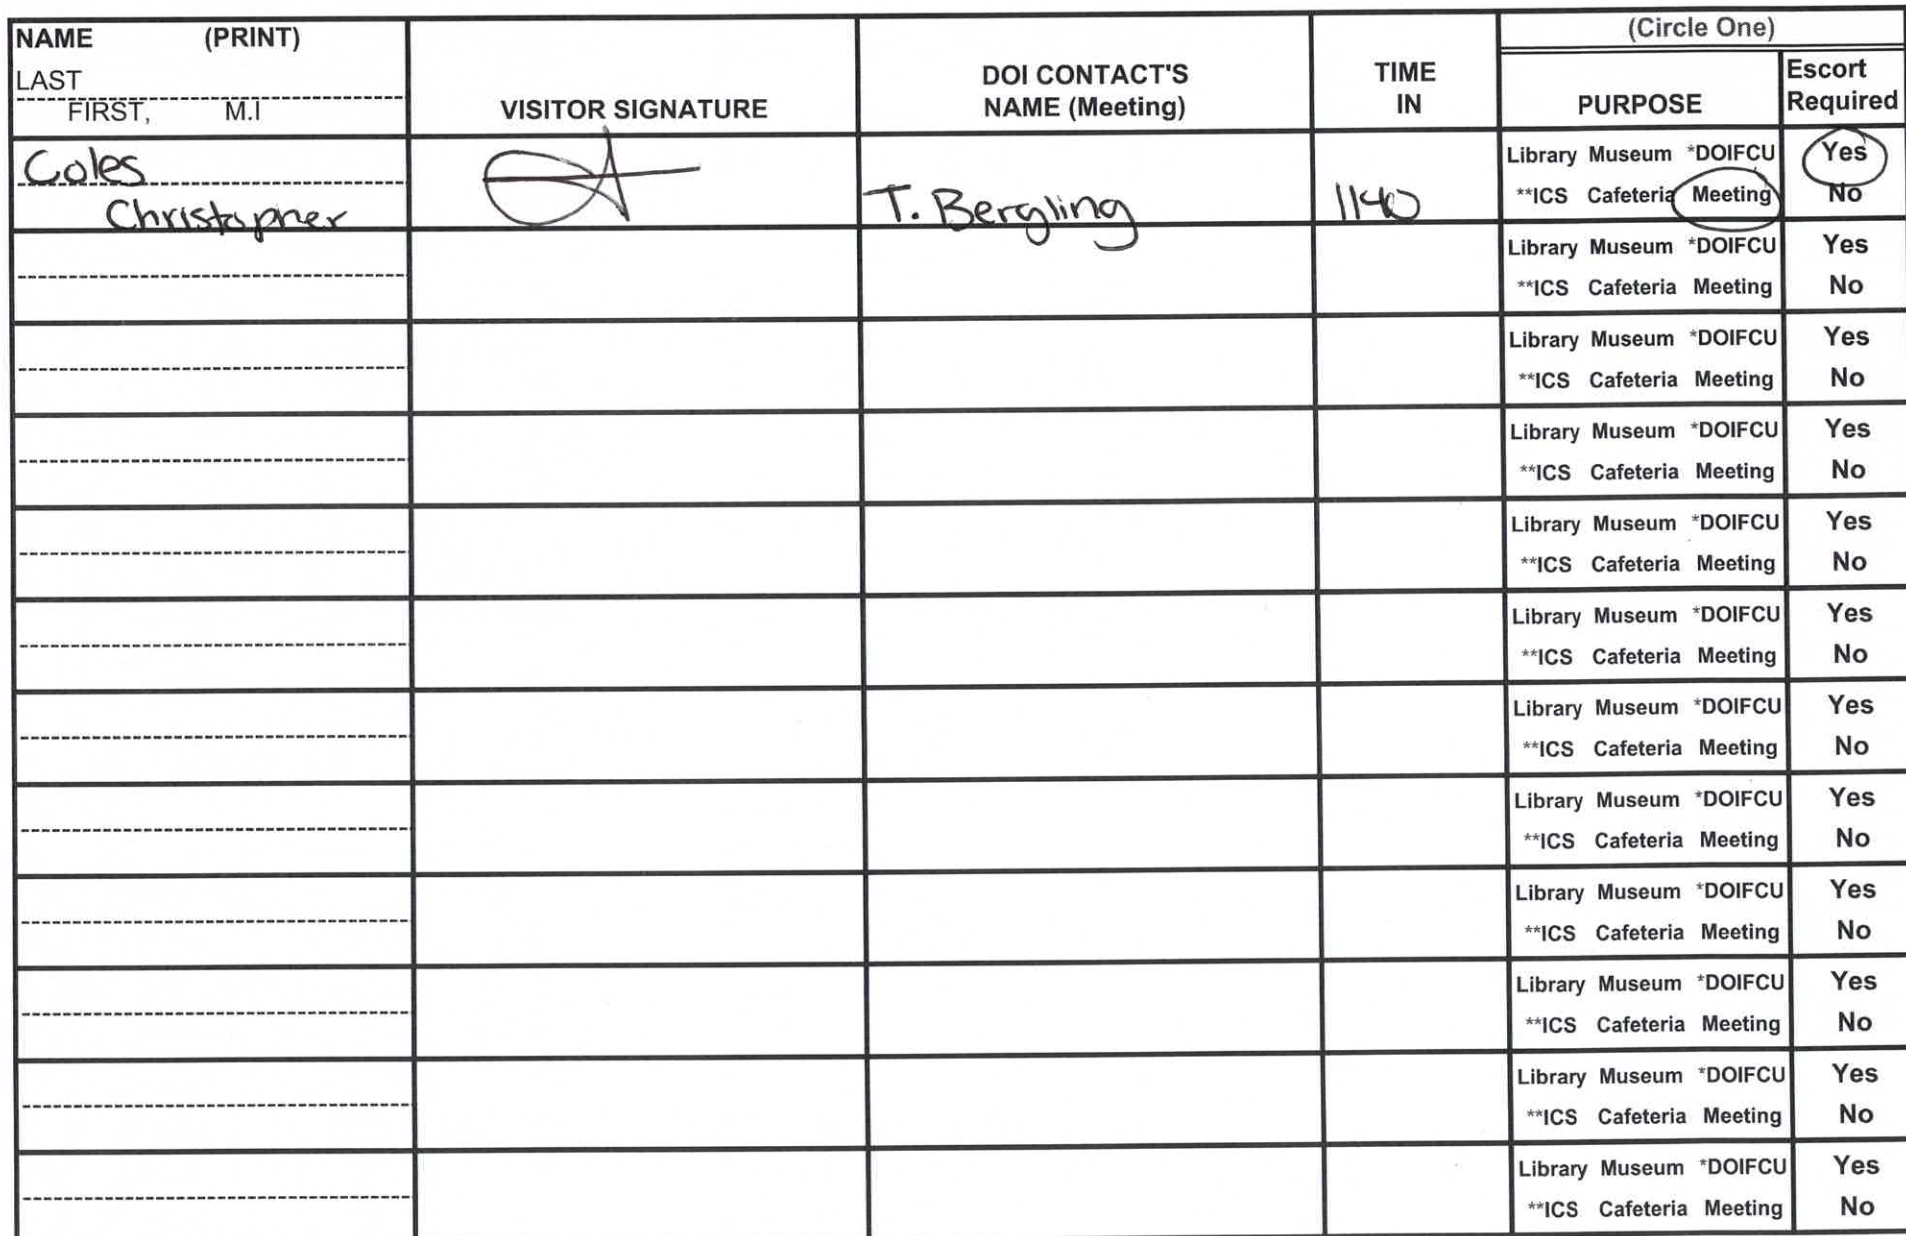 NAME (PRINT)
LAST
FIRST, M.I
VISITOR SIGNATURE
DOI CONTACT'S
NAME (Meeting)
TIME
IN
(Circle One)
PURPOSE
Escort
Required
Coles
Christopher
T. Bergling
1140
Library Museum *DOIFCU Yes
**ICS Cafeteria Meeting No
Library Museum *DOIFCU Yes
**ICS Cafeteria Meeting No
Library Museum *DOIFCU Yes
**ICS Cafeteria Meeting No
Library Museum *DOIFCU Yes
**ICS Cafeteria Meeting No
Library Museum *DOIFCU Yes
**ICS Cafeteria Meeting No
Library Museum *DOIFCU Yes
**ICS Cafeteria Meeting No
Library Museum *DOIFCU Yes
**ICS Cafeteria Meeting No
Library Museum *DOIFCU Yes
**ICS Cafeteria Meeting No
Library Museum *DOIFCU Yes
**ICS Cafeteria Meeting No
Library Museum *DOIFCU Yes
**ICS Cafeteria Meeting No
Library Museum *DOIFCU Yes
**ICS Cafeteria Meeting No
Library Museum *DOIFCU Yes
**ICS Cafeteria Meeting No